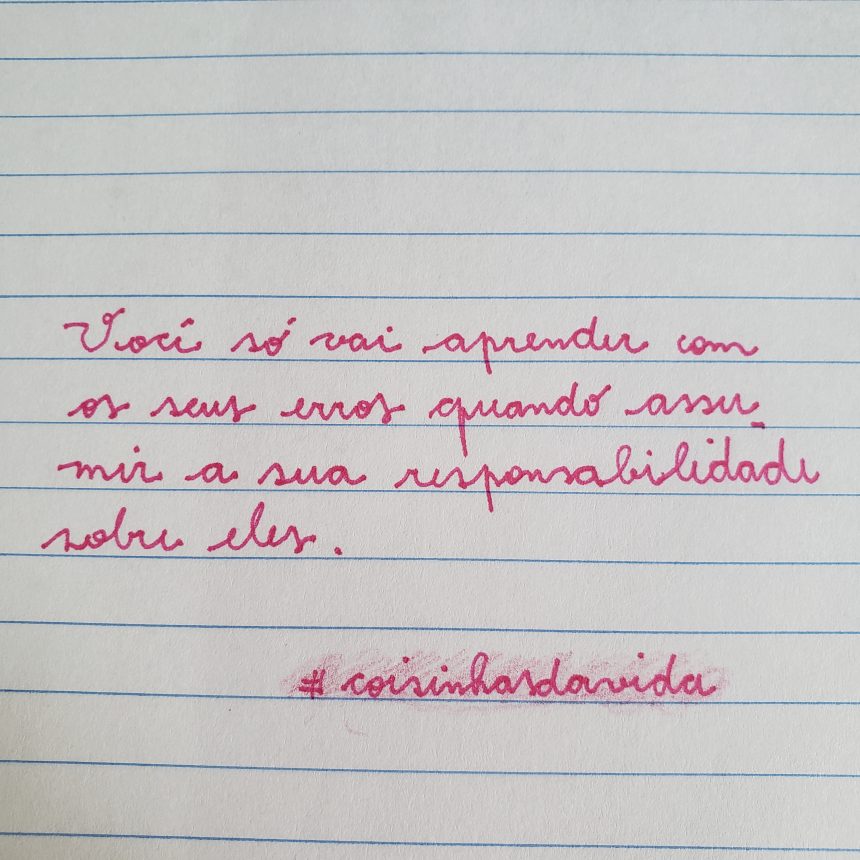 Você só vai aprender com
os seus erros quando assu-
mir a sua responsabilidade
sobre eles.
# coisinhasdavida